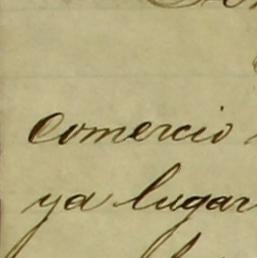 comercio
ya lugar